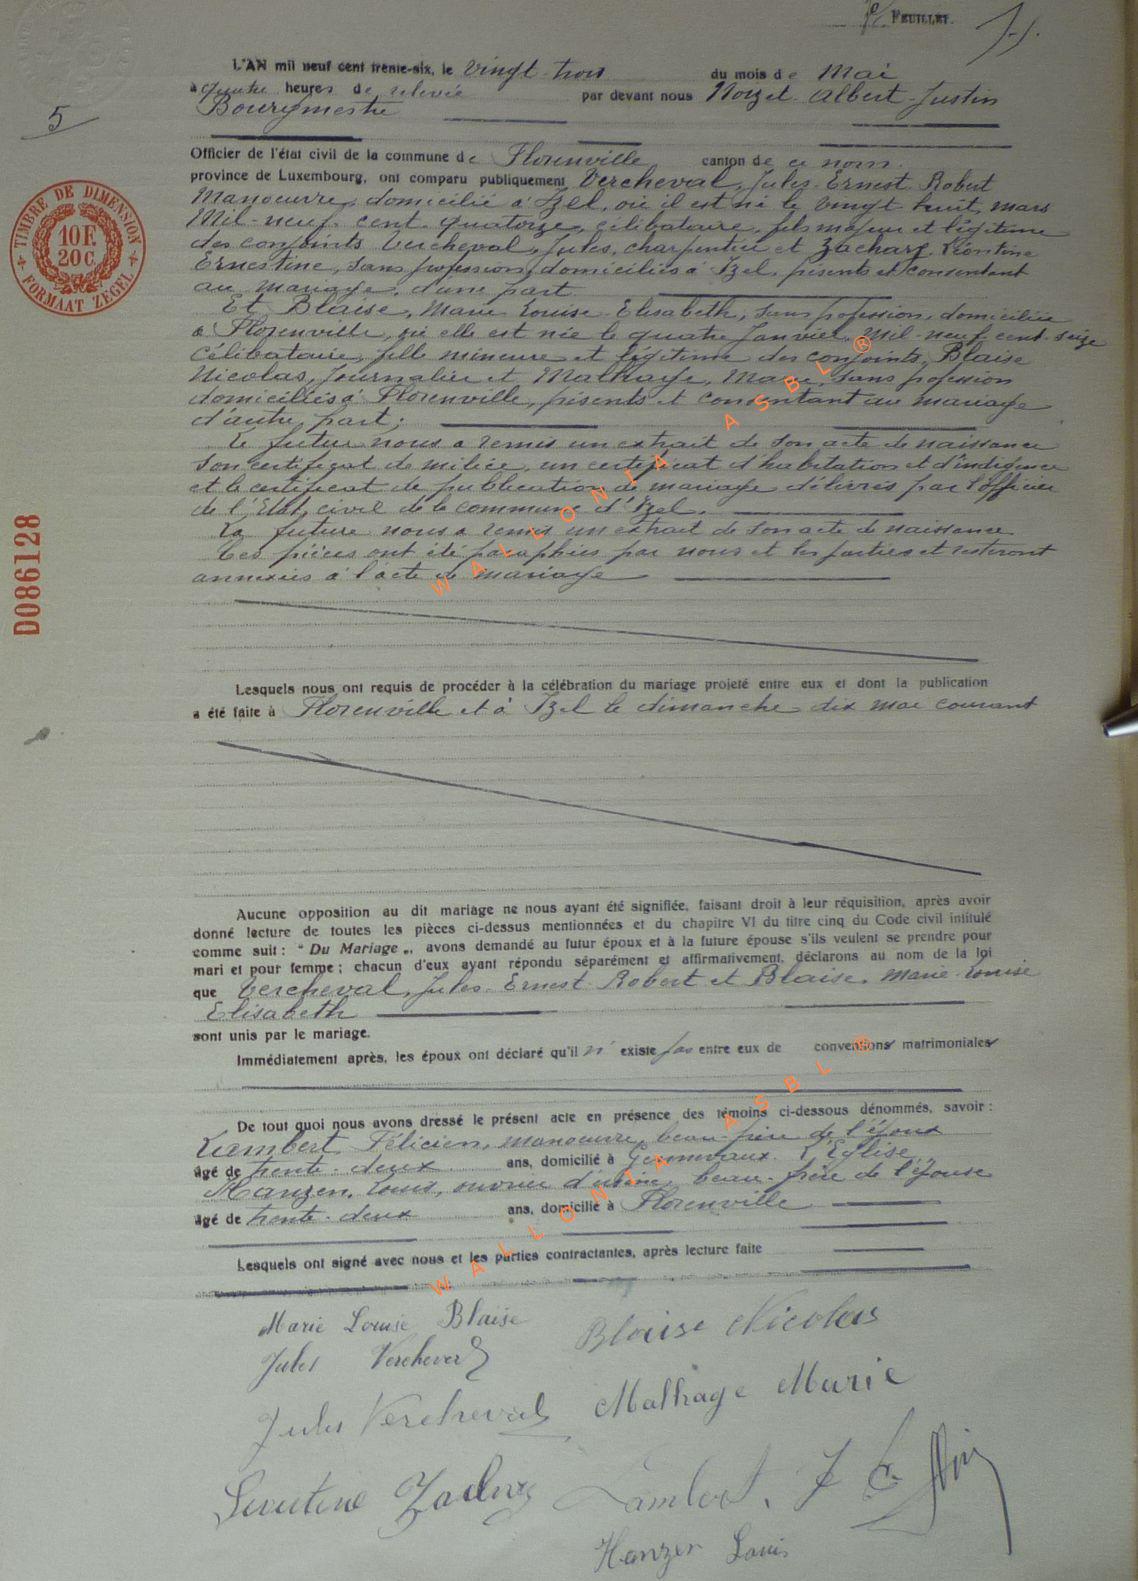 7e FEUILLET.
5
L'AN mil neuf cent trente-six, le vingt-trois du mois de Mai
à quatre heures de relevée par devant nous Noizet Albert-Justin
Bourgmestre
Officier de l'état civil de la commune de Florenville canton de ce nom.
province de Luxembourg, ont comparu publiquement Vercheval, Jules-Ernest-Robert
Manoeuvre, domicilié à Izel, où il est né le vingt huit mars
Mil-neuf-cent-quatorze, célibataire, fils majeur et légitime
des conjoints Vercheval, Jules, charpentier et Zachary, Léontine
Ernestine, sans profession, domiciliés à Izel, présents et consentant
au mariage, d'une part.
Et Blaise, Marie-Louise-Elisabeth, sans profession, domiciliée
à Florenville, où elle est née le quatre Janvier, Mil-neuf-cent-seize
Célibataire, fille mineure et légitime des conjoints, Blaise
Nicolas, Journalier et Malhage, Marie, sans profession
domiciliés à Florenville, présents et consentant au mariage
d'autre part;
Le futur nous a remis un extrait de son acte de naissance
son certificat de milice, un certificat d'habitation et d'indigence
et le certificat de publication de mariage délivrés par l'Officier
de l'Etat civil de la commune d'Izel.
La future nous a remis un extrait de son acte de naissance
Ces pièces ont été paraphées par nous et les parties et resteront
annexées à l'acte de mariage
TIMBRE DE DIMENSION
10F.
20C.
FORMAAT ZEGEL
D086128
Lesquels nous ont requis de procéder à la célébration du mariage projeté entre eux et dont la publication
a été faite à Florenville et à Izel le dimanche dix mai courant
Aucune opposition au dit mariage ne nous ayant été signifiée, faisant droit à leur réquisition, après avoir
donné lecture de toutes les pièces ci-dessus mentionnées et du chapitre VI du titre cinq du Code civil intitulé
comme suit : " Du Mariage „, avons demandé au futur époux et à la future épouse s'ils veulent se prendre pour
mari et pour femme ; chacun d'eux ayant répondu séparément et affirmativement, déclarons au nom de la loi
que Vercheval, Jules-Ernest-Robert et Blaise, Marie-Louise
Elisabeth
sont unis par le mariage.
Immédiatement après, les époux ont déclaré qu'il n' existe pas entre eux de conventions matrimoniales
De tout quoi nous avons dressé le présent acte en présence des témoins ci-dessous dénommés, savoir :
Lambert Félicien, manoeuvre, beau-frère de l'époux
âgé de trente-deux ans, domicilié à Gennevaux-L'Eglise,
Hanzen, Louis, ouvrier d'usine, beau-frère de l'épouse
âgé de trente-deux ans, domicilié à Florenville
Lesquels ont signé avec nous et les parties contractantes, après lecture faite
Marie Louise Blaise Blaise Nicolas
Jules Vercheval
Jules Vercheval Malhage Marie
Leontine Zachary Lambert. F
Hanzen Louis
WALLONIA ASBL ®
WALLONIA ASBL ®